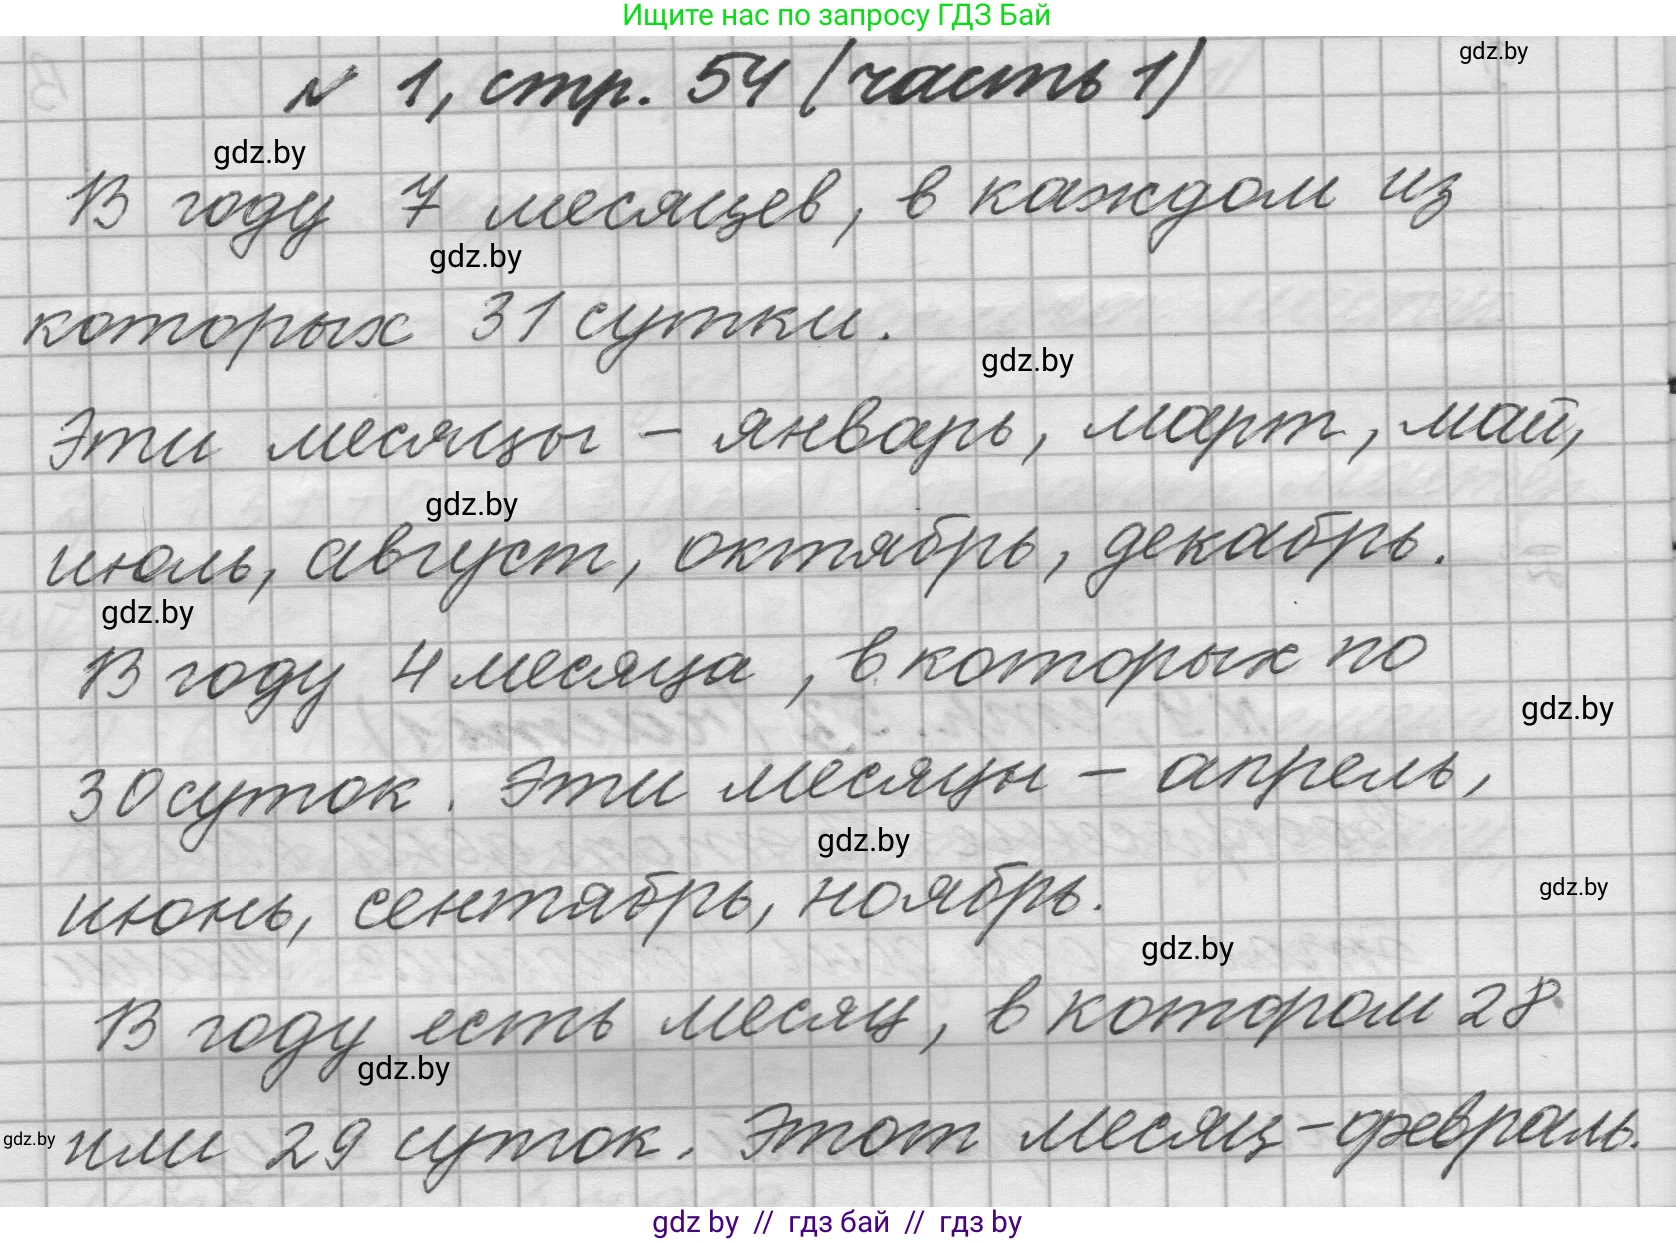 Ищите нас по запросу ГДЗ Бай
gdz.by
№ 1, стр. 54 (часть 1)
gdz.by
В году 7 месяцев, в каждом из
gdz.by
которых 31 сутки.
gdz.by
Эти месяцы – январь, март, май,
gdz.by
июль, август, октябрь, декабрь.
gdz.by
В году 4 месяца, в которых по
gdz.by
30 суток. Эти месяцы – апрель,
gdz.by
gdz.by
июнь, сентябрь, ноябрь.
gdz.by
В году есть месяц, в котором 28
gdz.by
gdz.by
или 29 суток. Этот месяц – февраль.
gdz by // гдз бай // гдз by